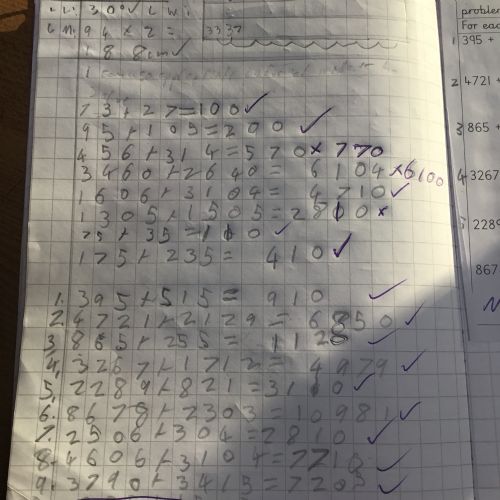 94 × 2 = 3337
188cm ✓
73+27=100 ✓
95+105=200 ✓
456+314=570 × 770
3460+2640= 6104 × 6100
1606+3104= 4710 ✓
1305+1505=2810 ×
75+35=110 ✓
175+235= 410 ✓
1. 395+515= 910 ✓
2. 4721+2129= 6850 ✓
3. 865+255= 1120 ✓
4. 3267+1712= 4979 ✓
5. 2289+821=3110 ✓
6. 8678+2303=10981 ✓
7. 2506+304=2810 ✓
8. 4606+3104=7710 ✓
9. 3790+3415=7205 ✓
problem
For each
1 395 +
2 4721 +
3 865 +
4 3267
5 2289
867